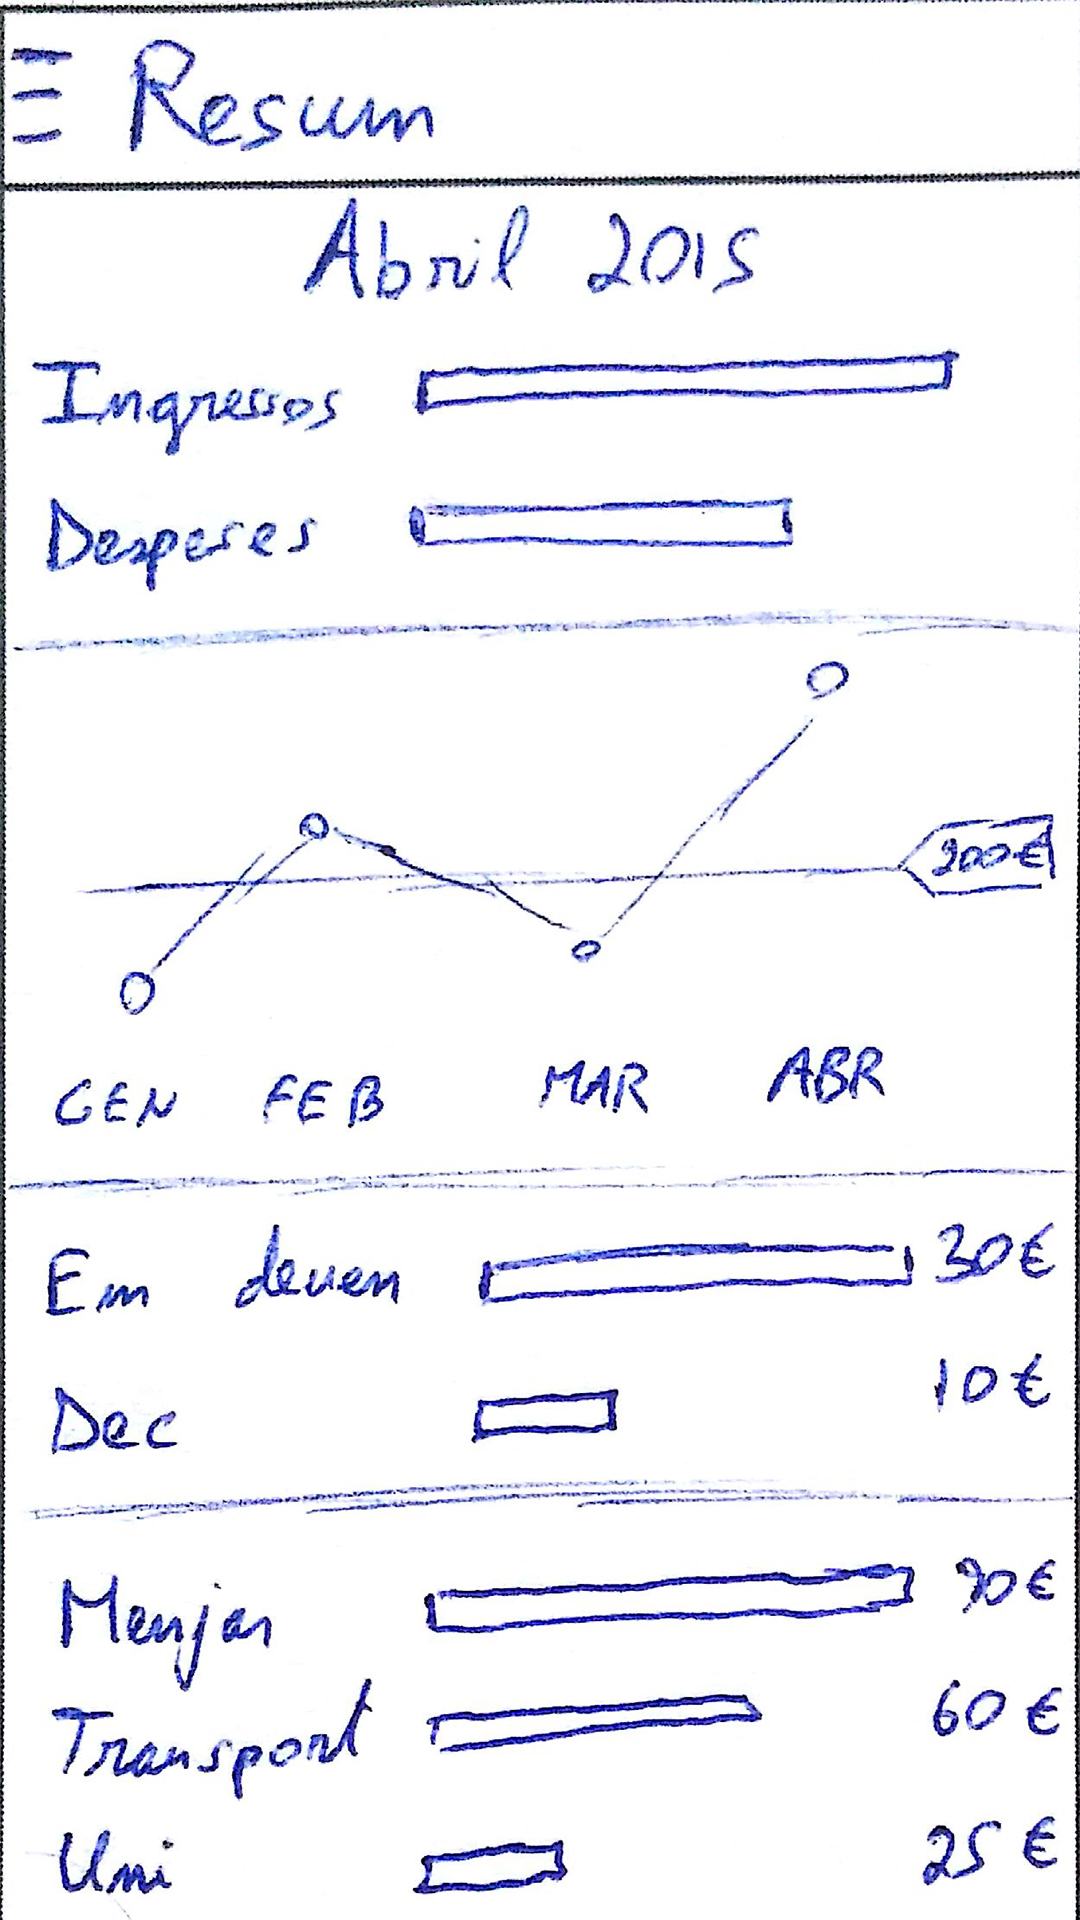 Resum
Abril 2015
Ingressos
Despeses
200€
GEN FEB MAR ABR
Em deuen 30€
Dec 10€
Menjar
Transport 60€
Uni 25€